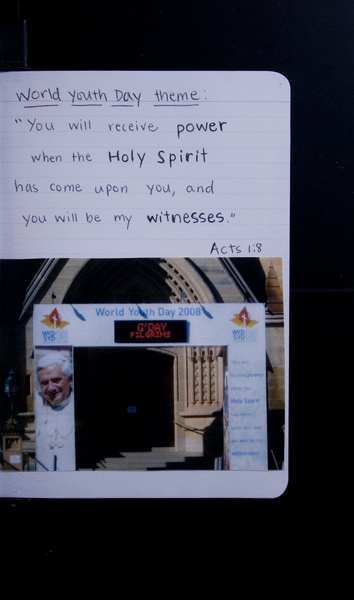 World Youth Day theme:
"You will receive power
when the Holy Spirit
has come upon you, and
you will be my witnesses."
Acts 1:8
World Youth Day 2008
G'DAY
PILGRIMS
WYD
SYD
WYD
SYD
Holy Spirit
witnesses